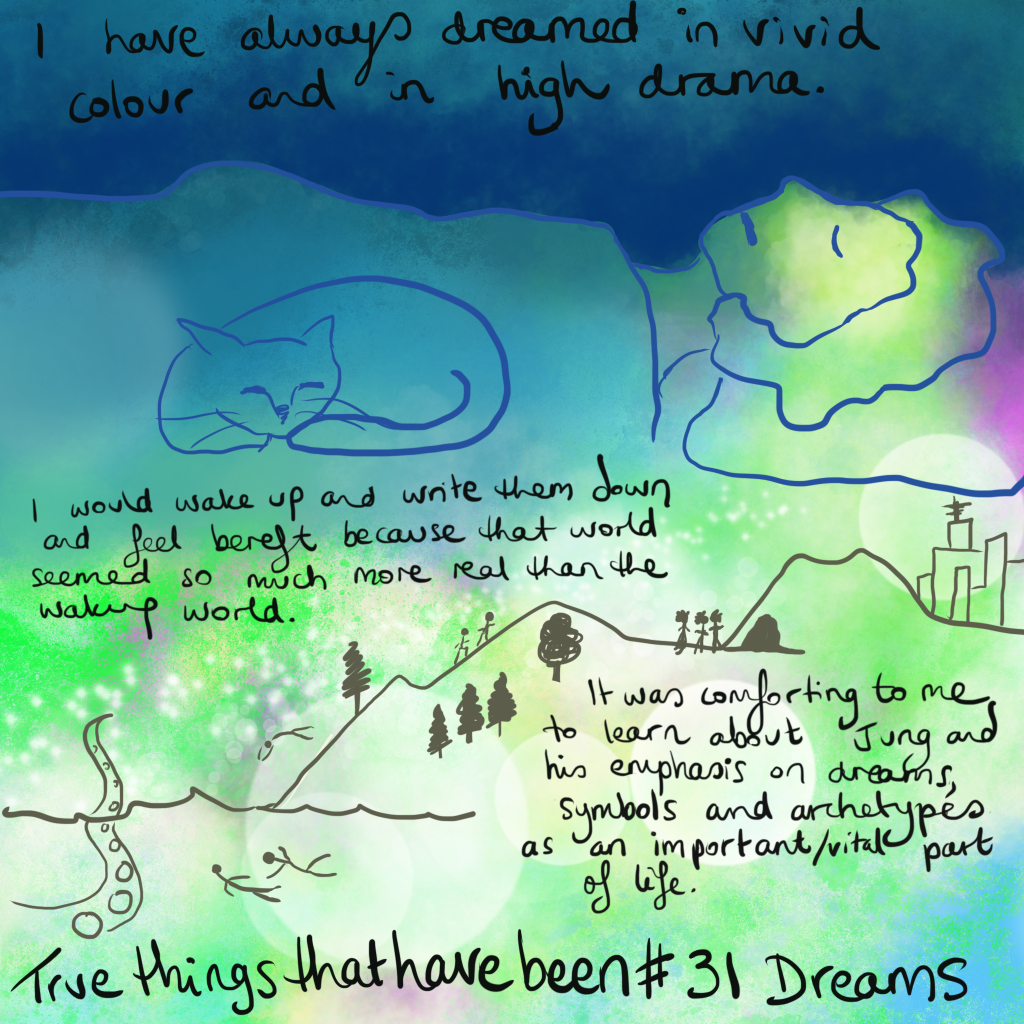 I have always dreamed in vivid
colour and in high drama.
I would wake up and write them down
and feel bereft because that world
seemed so much more real than the
waking world.
It was comforting to me
to learn about Jung and
his emphasis on dreams,
symbols and archetypes
as an important/vital part
of life.
True things that have been #31 Dreams